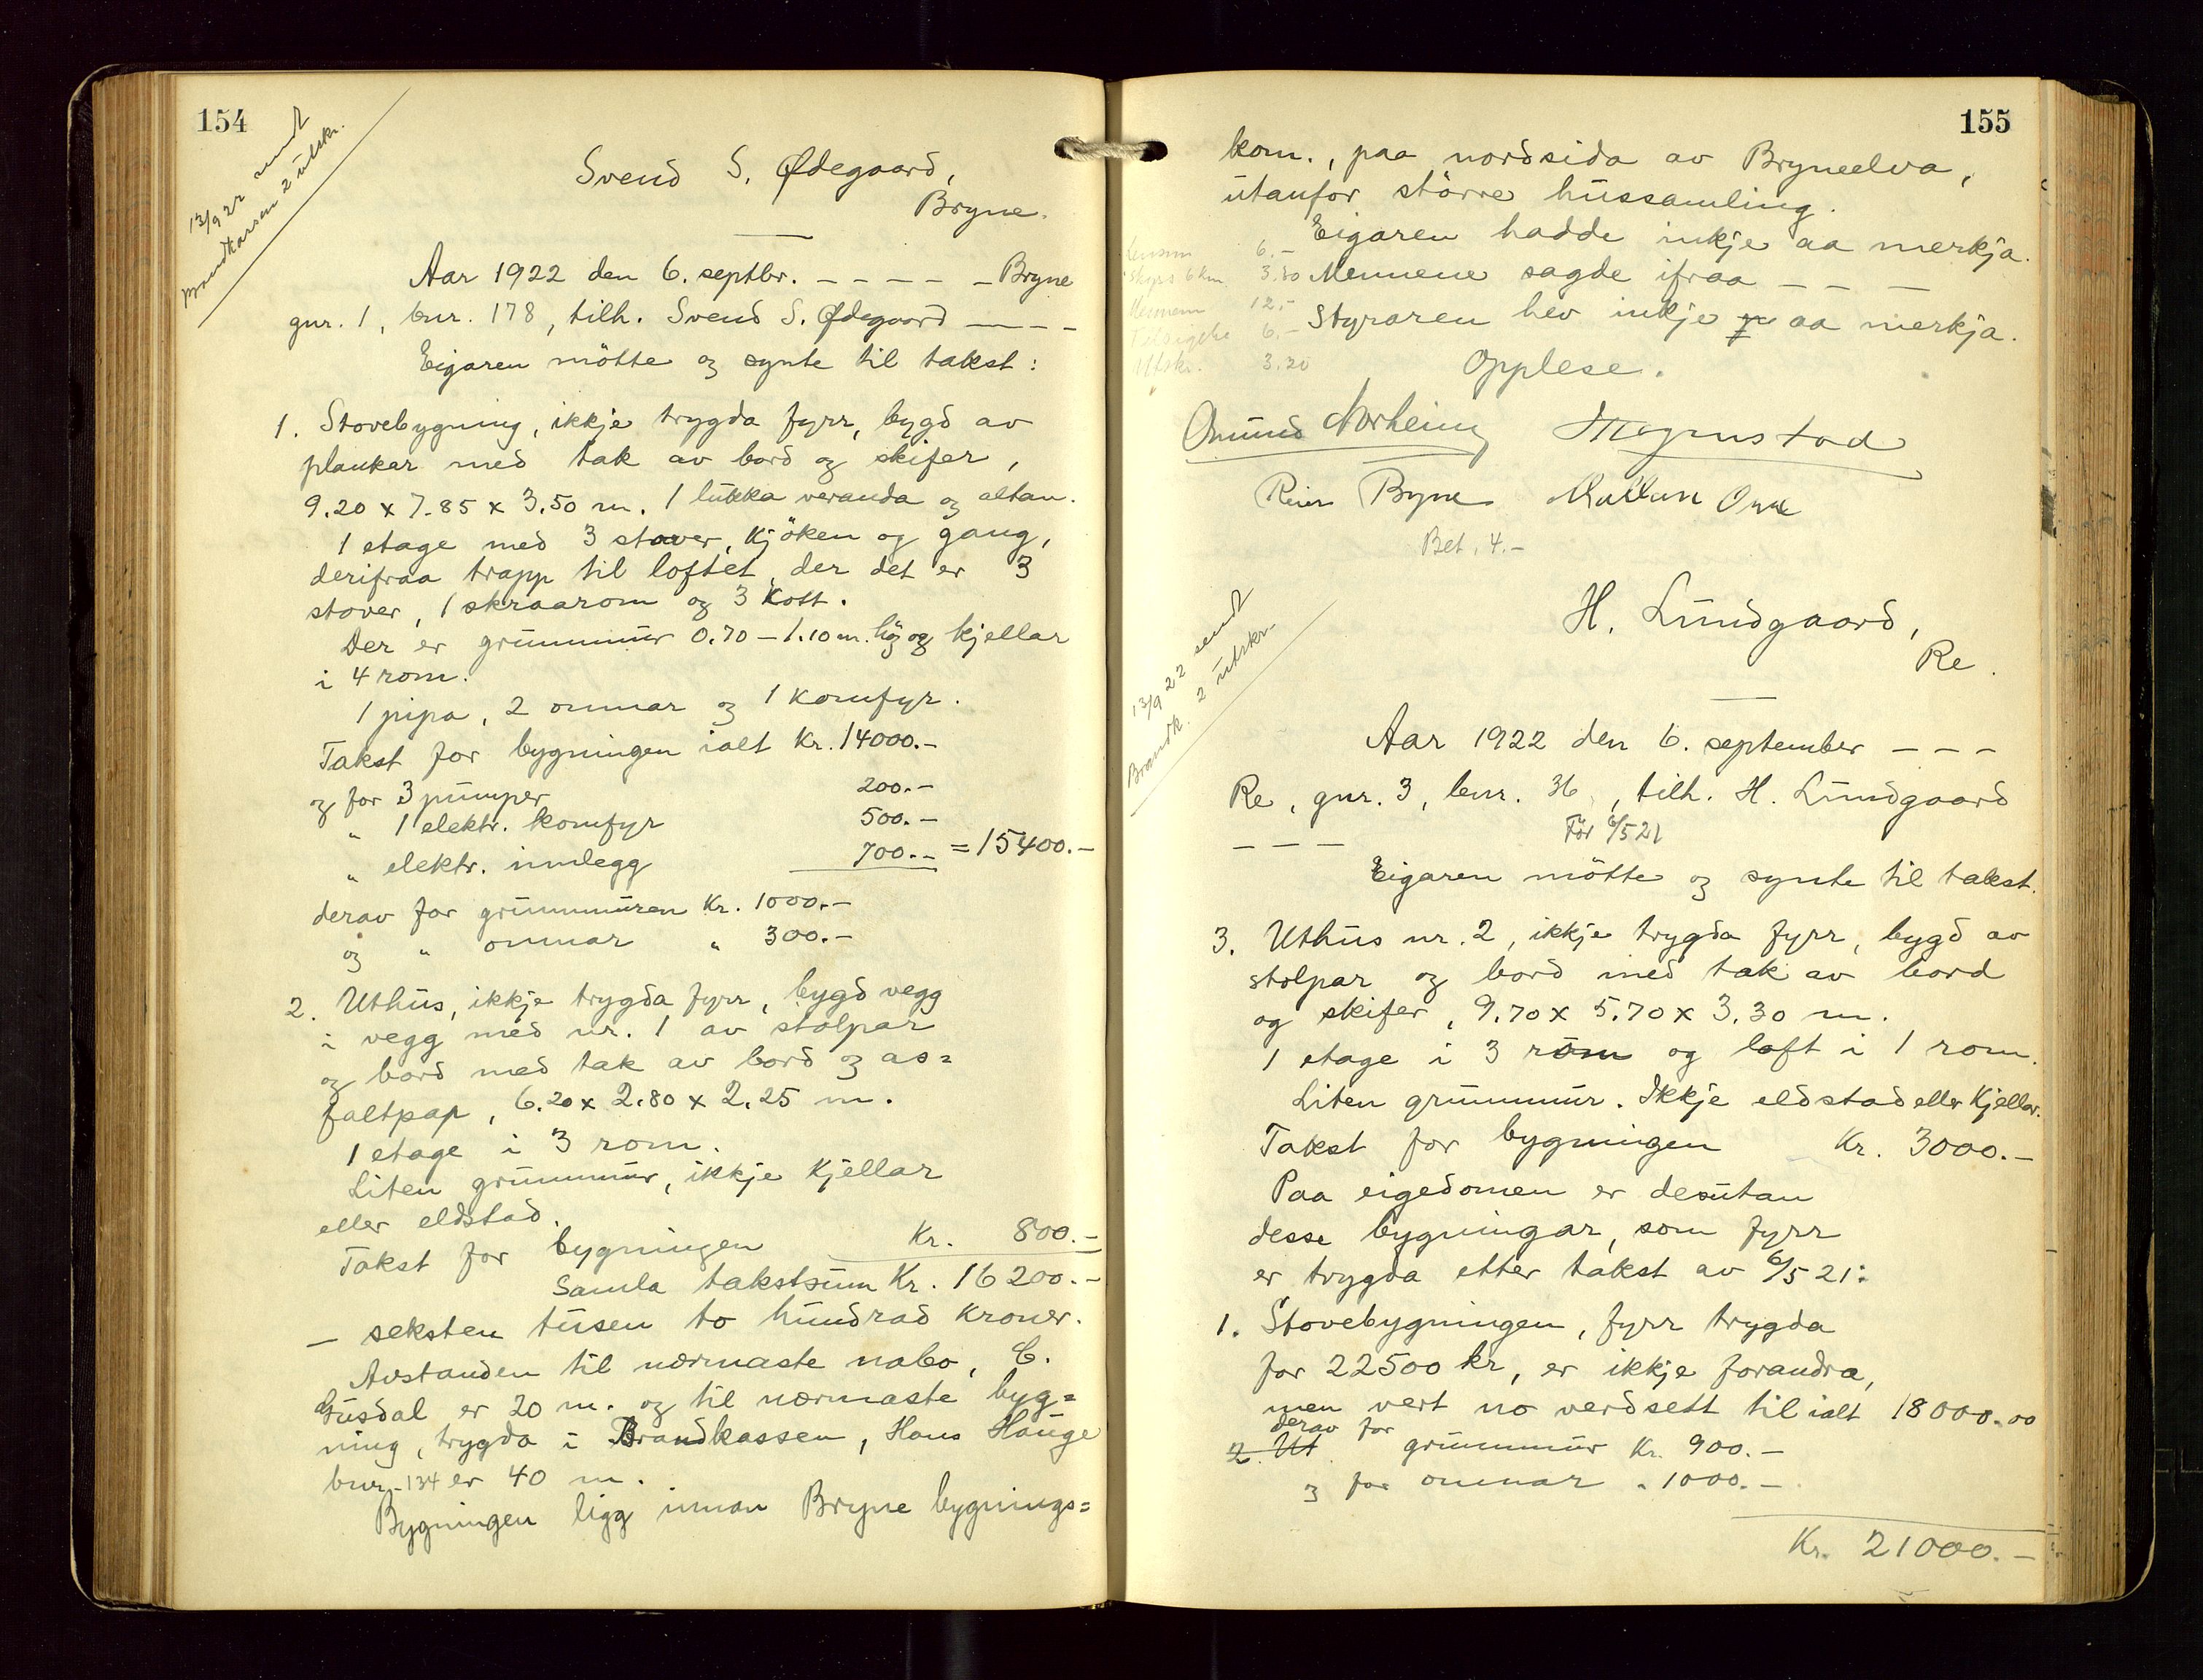 154
13/9 22 sendt
Brandkassen 2 utskr.
Svend S. Ødegaard,
Bryne.
Aar 1922 den 6. septbr. – – – – – Bryne
gnr. 1, bnr. 178, tilh. Svend S. Ødegaard – – –
Eigaren mötte og synte til takst:
1. Stovebygning, ikkje trygda fyrr, bygd av
plankar med tak av bord og skifer,
9.20 x 7.85 x 3.50 m. 1 lukka veranda og altan.
1 etage med 3 stover, kjöken og gang,
derifraa trapp til loftet, der det er 3
stover, 1 skraarom og 3 kott.
Der er grunnmur 0.70 – 1.10 m. hög og kjellar
i 4 rom.
1 pipa, 2 omnar og 1 komfyr.
Takst for bygningen ialt Kr. 14000.–
og for 3 pumper 200.–
" 1 elektr. komfyr 500.–
" elektr. innlegg 700.– = 15400.–
derav for grunnmuren Kr. 1000.–
og " omnar " 300.–
2. Uthus, ikkje trygda fyrr, bygd vegg
i vegg med nr. 1 av stolpar
og bord med tak av bord og as=
faltpap, 6.20 x 2.80 x 2.25 m.
1 etage i 3 rom.
Liten grunnmur, ikkje kjellar
eller eldstad.
Takst for bygningen Kr. 800.–
Samla takstsum Kr. 16200.–
– seksten tusen to hundrad kroner.
Avstanden til nærmaste nabo, E.
Gusdal er 20 m. og til nærmaste byg=
ning, trygda i Brandkassen, Hans Hauge
bnr. 134 er 40 m.
Bygningen ligg innan Bryne bygnings=
155
kom., paa nordsida av Bryneelva,
utanfor större hussamling.
Eigaren hadde inkje aa merkja.
Mennene sagde ifraa – – –
Styraren hev inkje aa merkja.
6.–
Skyss 6 km 3.30
Mennene 12.–
6.–
Utskr. 3.20
Opplese.
Omund Norheim Magnustad
Reier Bryne
Bet. 4.–
13/9 22 sendt
Brandk. 2 utskr.
H. Lundgaard,
Re.
Aar 1922 den 6. september – – –
Re, gnr. 3, bnr. 36, tilh. H. Lundgaard
– – – För 6/5 21
Eigaren mötte og synte til takst.
3. Uthus nr. 2, ikkje trygda fyrr, bygd av
stolpar og bord med tak av bord
og skifer, 9.70 x 5.70 x 3.30 m.
1 etage i 3 rom og loft i 1 rom.
Liten grunnmur. Ikkje eldstad eller kjellar.
Takst for bygningen Kr. 3000.–
Paa eigedomen er desutan
desse bygningar, som fyrr
er trygda etter takst av 6/5 21:
1. Stovebygningen, fyrr trygda
for 22500 kr, er ikkje forandra,
men vert no verdsett til ialt 18000.00
derav for
2. Ut grunnmur Kr. 900.–
og for omnar " 1000.–
Kr. 21000.–